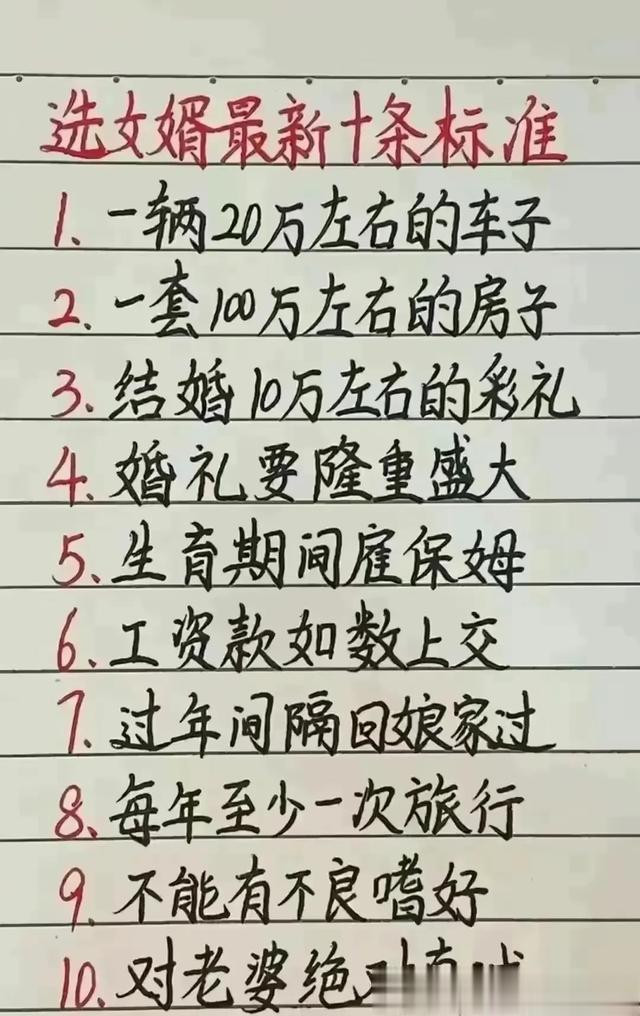 选女婿最新十条标准
1. 一辆20万左右的车子
2. 一套100万左右的房子
3. 结婚10万左右的彩礼
4. 婚礼要隆重盛大
5. 生育期间雇保姆
6. 工资款如数上交
7. 过年间隔回娘家过
8. 每年至少一次旅行
9. 不能有不良嗜好
10. 对老婆绝对